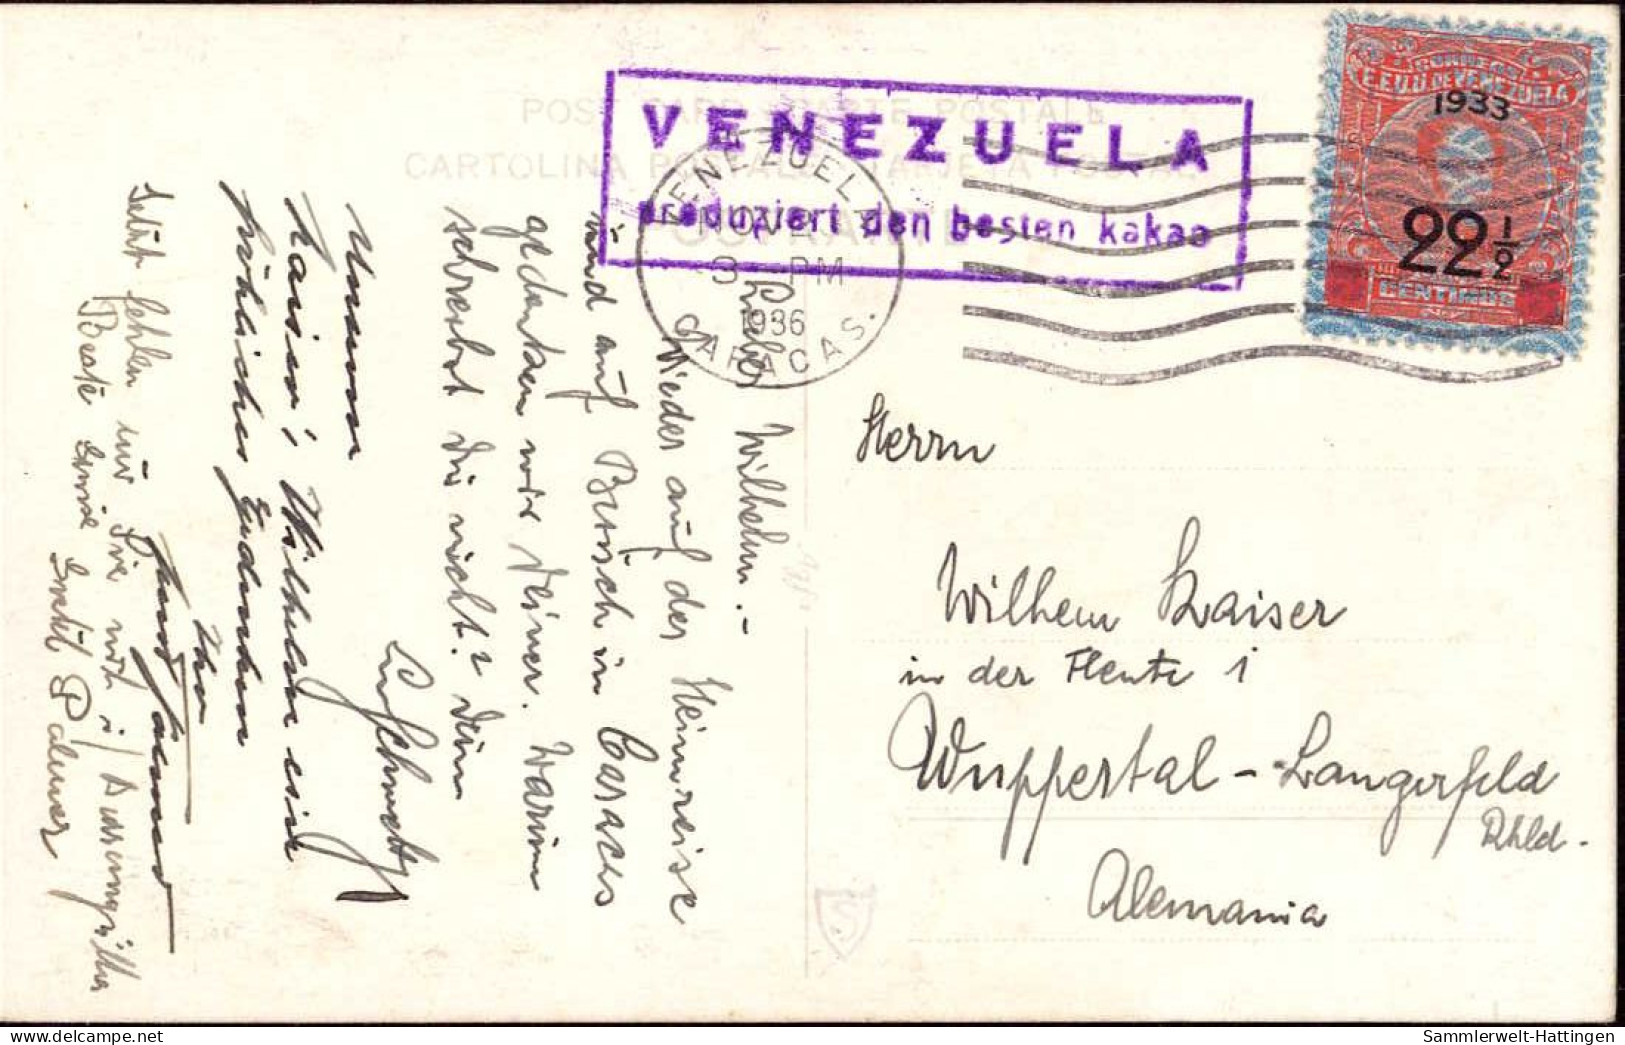 POST CARD - CARTE POSTALE
CARTOLINA POSTALE - TARJETA POSTAL
VENEZUELA
produziert den besten kakao
VENEZUELA
NOV 2
3 - PM
1936
CARACAS.
CORREOS
E.E.U.U. DE VENEZUELA
1933
22 1/2
CENTIMOS
Lieber Wilhelm. -
Wieder auf der Heimreise
und auf Besuch in Caracas
gedenken wir Deiner. Warum
schreibst Du nicht? Dein
Unserm
Kaiser, Wilhelm ein
fröhliches Gedenken
Ihr
Jetzt fehlen nur Sie noch
Beste Grüße
Herrn
Wilhelm Kaiser
in der Fleute 1
Wuppertal - Langerfeld
Rhld.
Alemania
Sammlerwelt-Hattingen